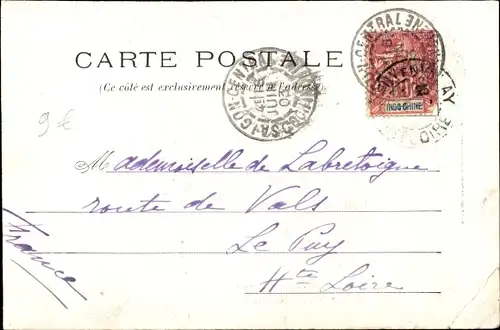 CARTE POSTALE
(Ce côté est exclusivement réservé à l'adresse)
SAIGON CENTRAL
INDO-CHINE
9 €
Mademoiselle de Labretoigne
route de Vals
Le Puy
Hte Loire
France